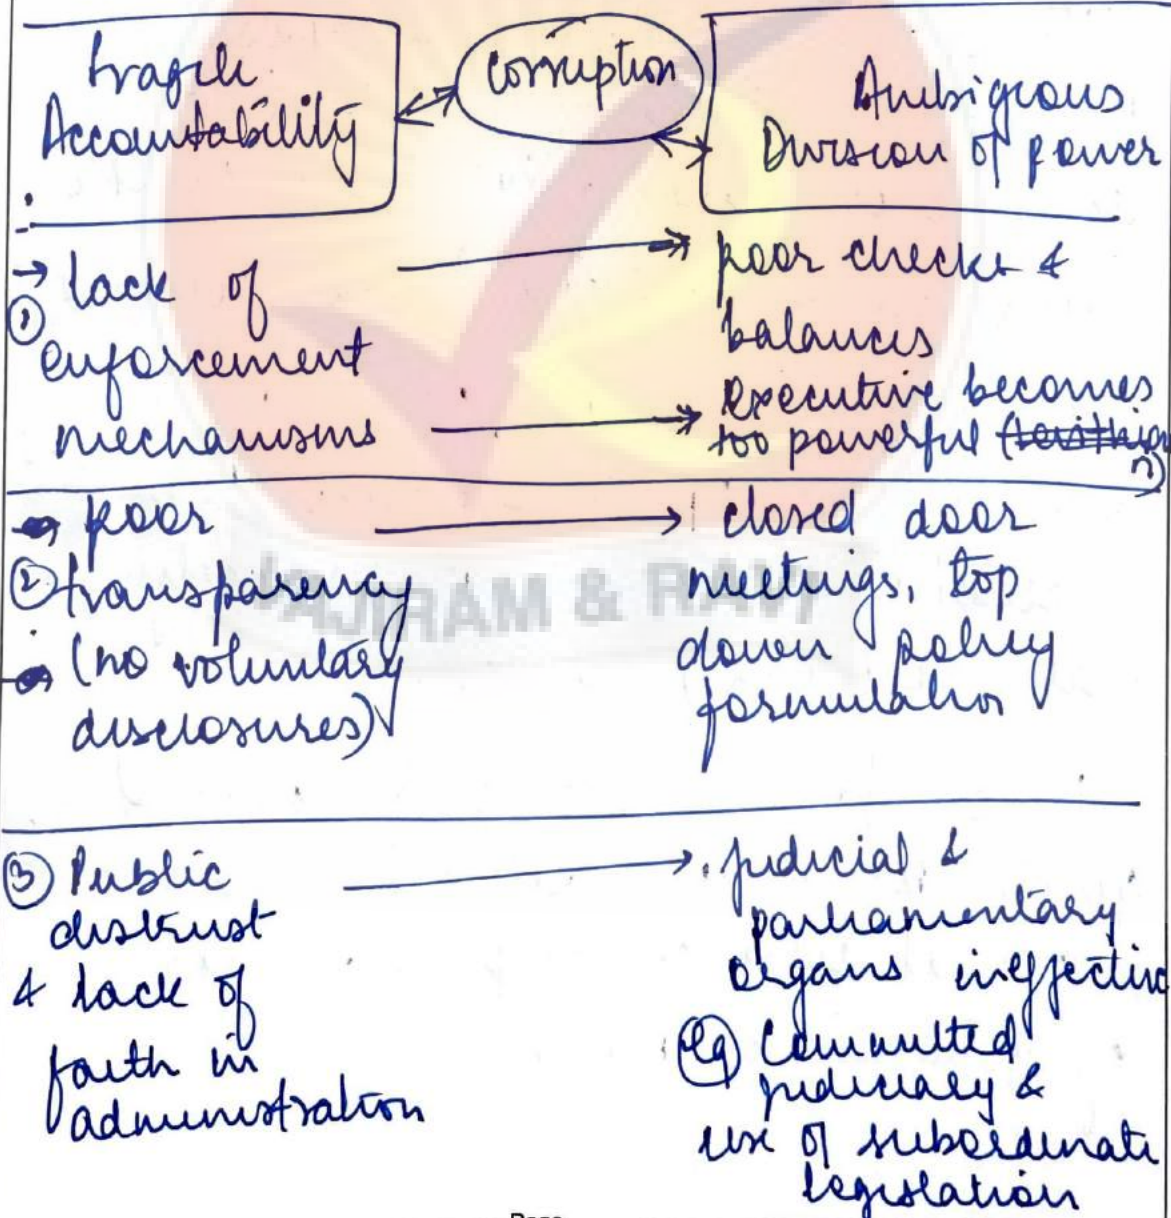 Fragile
Accountability
Corruption
Ambigious
Division of power
→ lack of
① enforcement
mechanisms
poor checks &
balances
Executive becomes
too powerful
→ poor
② transparency
(no voluntary
disclosures)
closed door
meetings, top
down policy
formulation
③ Public
distrust
& lack of
faith in
administration
judicial &
parliamentary
organs ineffective
eg Committed
judiciary &
use of subordinate
legislation
VAJIRAM & RAVI
Page